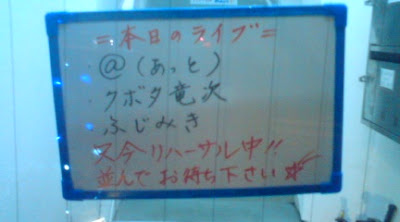 =本日のライブ=
・@(あっと)
・クボタ竜次
・ふじみき
只今リハーサル中!!
並んでお待ち下さい